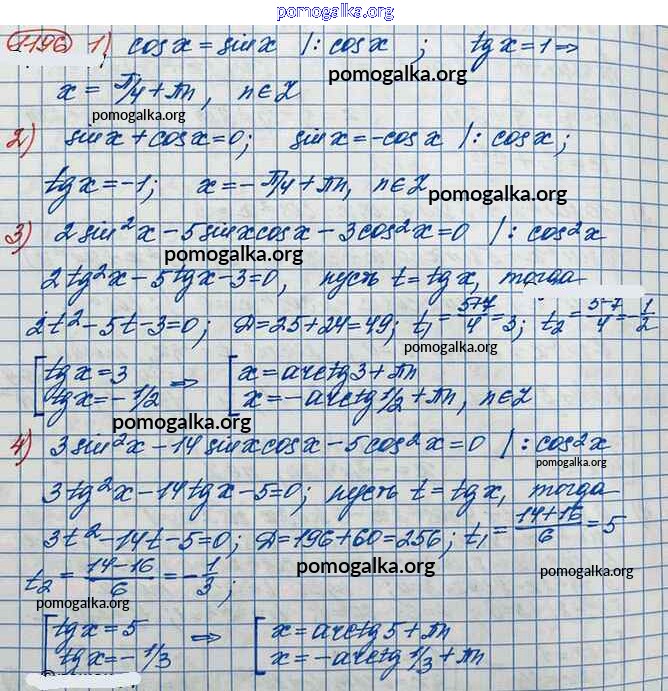 pomogalka.org
1196 1) cosx = sinx |: cosx ; tgx = 1 ⇒
pomogalka.org
x = π/4 + πn, n∈Z
pomogalka.org
2) sinx + cosx = 0; sinx = -cosx |: cosx;
tgx = -1; x = -π/4 + πn, n∈Z
pomogalka.org
3) 2sin²x - 5sinxcosx - 3cos²x = 0 |: cos²x
pomogalka.org
2tg²x - 5tgx - 3 = 0, пусть t = tgx, тогда
2t² - 5t - 3 = 0; D = 25 + 24 = 49; t₁ = (5+7)/4 = 3; t₂ = (5-7)/4 = -1/2
pomogalka.org
[ tgx = 3 ⇒ [ x = arctg3 + πn
tgx = -1/2 x = -arctg1/2 + πn, n∈Z
pomogalka.org
4) 3sin²x - 14sinxcosx - 5cos²x = 0 |: cos²x
pomogalka.org
3tg²x - 14tgx - 5 = 0; пусть t = tgx, тогда
3t² - 14t - 5 = 0; D = 196 + 60 = 256; t₁ = (14+16)/6 = 5
t₂ = (14-16)/6 = -1/3;
pomogalka.org pomogalka.org
pomogalka.org
[ tgx = 5 ⇒ [ x = arctg5 + πn
tgx = -1/3 x = -arctg1/3 + πn